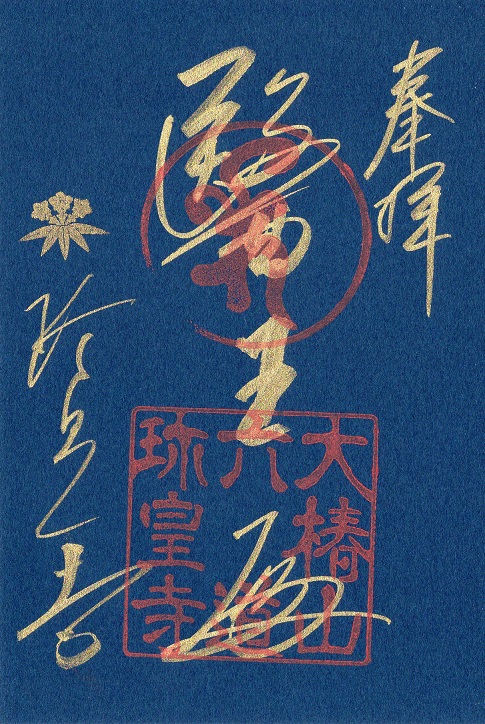 奉拝
醫王殿
珍皇寺
大椿山
六道
珎皇寺